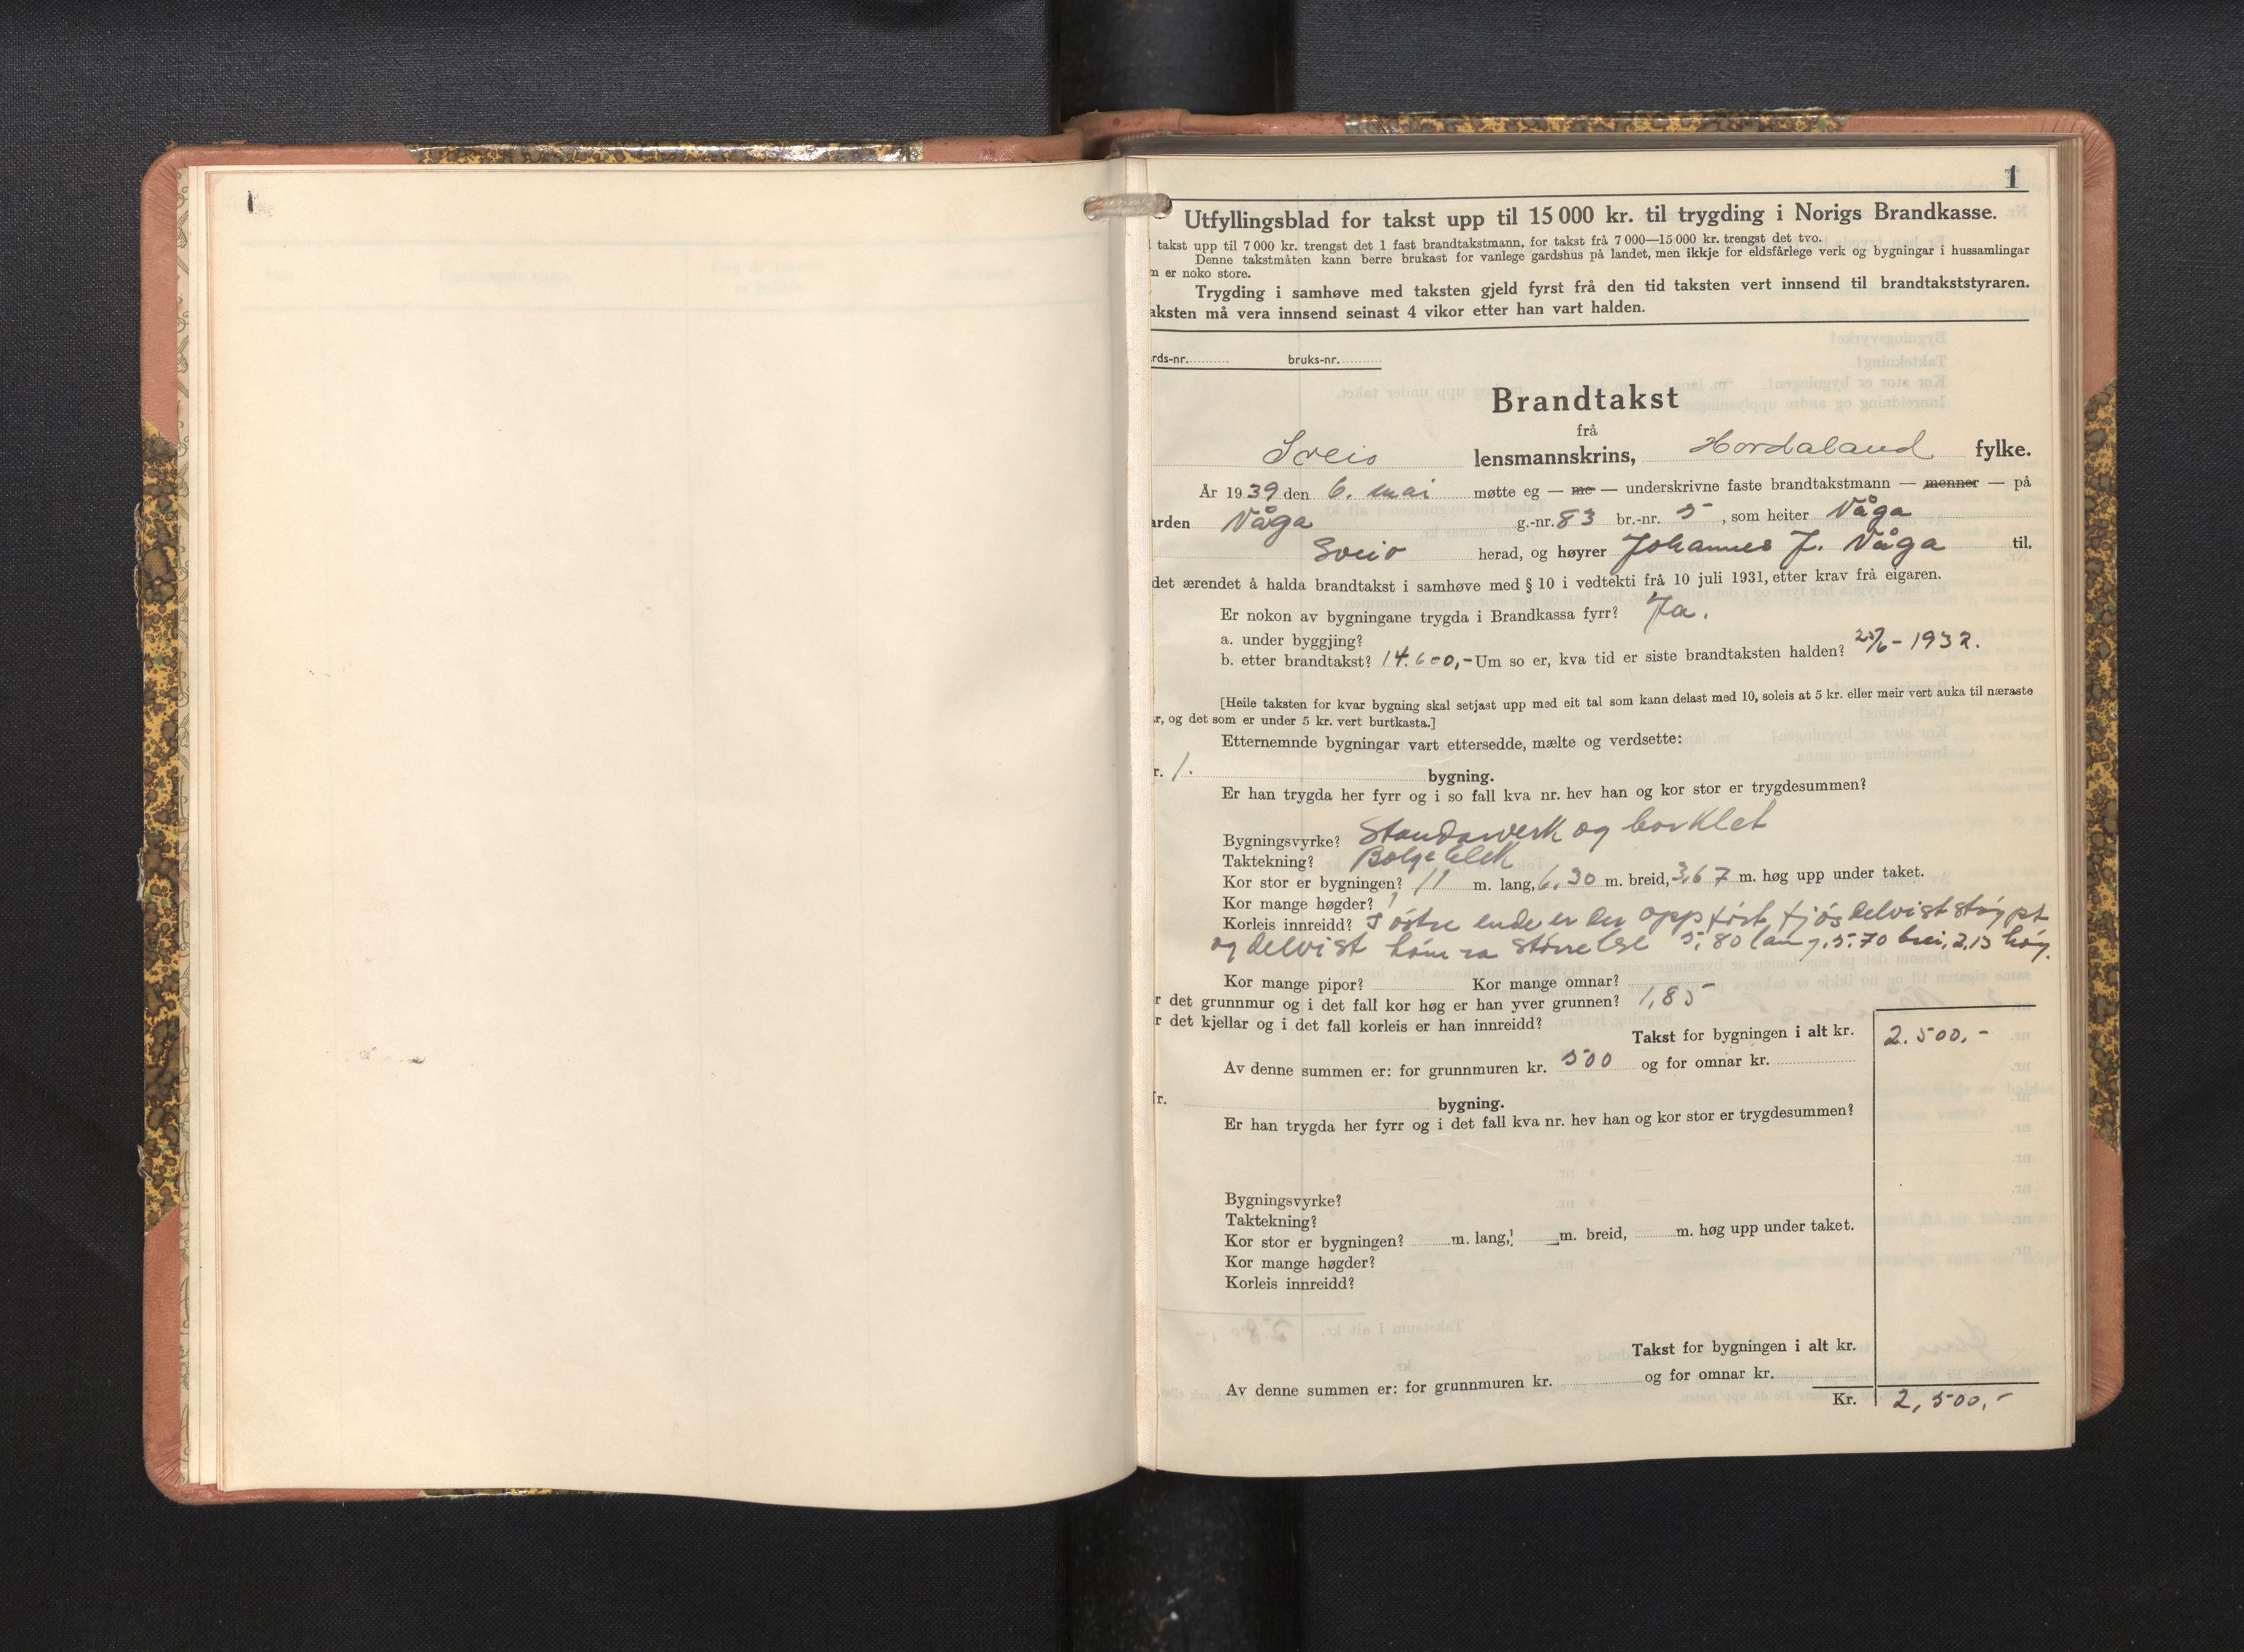 1
1
Utfyllingsblad for takst upp til 15 000 kr. til trygding i Norigs Brandkasse.
takst upp til 7 000 kr. trengst det 1 fast brandtakstmann, for takst frå 7 000—15 000 kr. trengst det tvo.
Denne takstmåten kann berre brukast for vanlege gardshus på landet, men ikkje for eldsfårlege verk og bygningar i hussamlingar
er noko store.
Trygding i samhøve med taksten gjeld fyrst frå den tid taksten vert innsend til brandtakststyraren.
aksten må vera innsend seinast 4 vikor etter han vart halden.
rds-nr. bruks-nr.
Brandtakst
frå
Sveio lensmannskrins, Hordaland fylke.
År 1939 den 6. mai møtte eg — me — underskrivne faste brandtakstmann — menner — på
arden Våga g.-nr. 83 br.-nr. 5, som heiter Våga
Sveio herad, og høyrer Johannes J. Våga til.
det ærendet å halda brandtakst i samhøve med § 10 i vedtekti frå 10 juli 1931, etter krav frå eigaren.
Er nokon av bygningane trygda i Brandkassa fyrr? Ja.
a. under byggjing?
b. etter brandtakst? 14.600,- Um so er, kva tid er siste brandtaksten halden? 25/6 - 1932.
[Heile taksten for kvar bygning skal setjast upp med eit tal som kann delast med 10, soleis at 5 kr. eller meir vert auka til næraste
r, og det som er under 5 kr. vert burtkasta.]
Etternemnde bygningar vart ettersedde, mælte og verdsette:
r. 1. bygning.
Er han trygda her fyrr og i so fall kva nr. hev han og kor stor er trygdesummen?
Bygningsvyrke? Standarverk og borklet
Taktekning? Bolgeblek
Kor stor er bygningen? 11 m. lang, 6,30 m. breid, 3,67 m. høg upp under taket.
Kor mange høgder? 1
Korleis innreidd? I østre ende er der oppført fjøs delvist støypt
og delvist størrelse 5,80 lang, 5,70 brei, 2,15 høy.
Kor mange pipor? Kor mange omnar?
r det grunnmur og i det fall kor høg er han yver grunnen? 1,85
r det kjellar og i det fall korleis er han innreidd?
Takst for bygningen i alt kr. 2.500,-
Av denne summen er: for grunnmuren kr. 500 og for omnar kr.
r. bygning.
Er han trygda her fyrr og i det fall kva nr. hev han og kor stor er trygdesummen?
Bygningsvyrke?
Taktekning?
Kor stor er bygningen? m. lang, m. breid, m. høg upp under taket.
Kor mange høgder?
Korleis innreidd?
Takst for bygningen i alt kr.
Av denne summen er: for grunnmuren kr. og for omnar kr.
Kr. 2,500,-